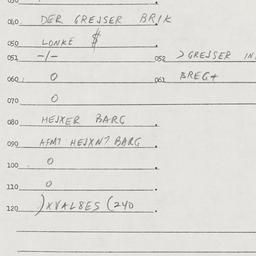 040 DER GREJSER BRIK
050 LONKE $
051 -/-
052 > GREJSER IN
060 0
061 BREG+
070 0
080 HEJXER BARG
090 AFM? HEJXN? BARG
100 0
110 0
120 )XVAL8ES (240